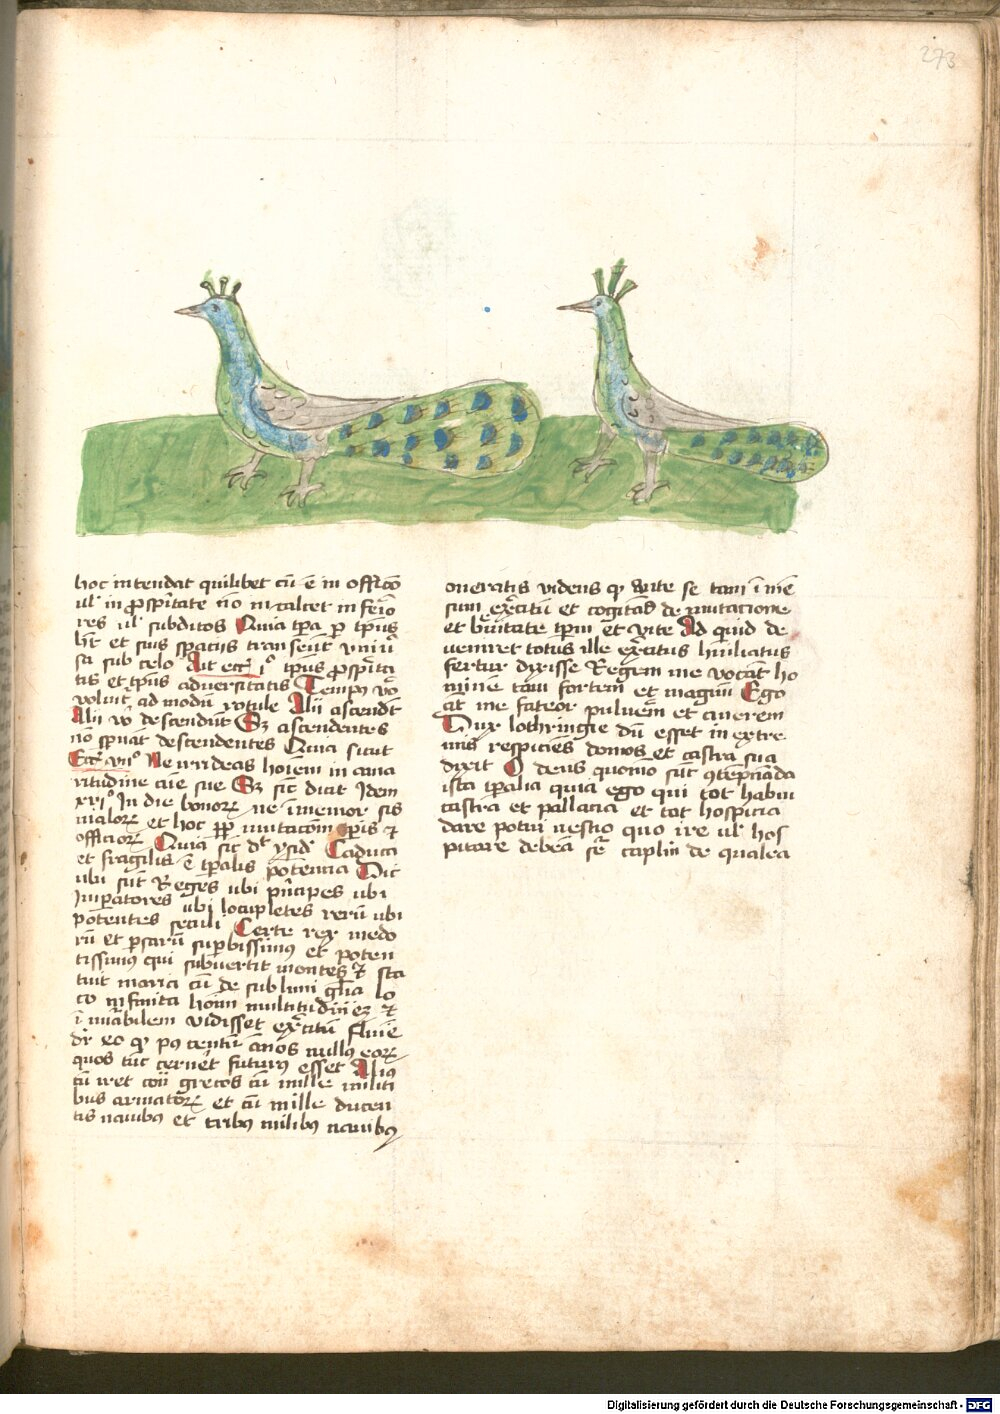 273
hoc intendat quilibet cū ē in offi͞co
ul' in ꝓspitate nō incalcet infeı͞o
res ul' subditos Quia tpa p tpus
hn̄t et suis spacijs transeūt uniū͛
sa sub celo Ait ecc͞ı ıº tpus ꝓspita
tis et tpus adversitatis Tempꝰ vo͞
volunt̄ ad modū rotule Alij ascendn̄t
Alij vo͛ descendūt Sꝫ ascendentes
nō spnāt descendentes Quia sicut
Ecc͞ı vııº Ne irrideas hoīem in ama
ritudine aīe sue Sꝫ sic̄ dicit Idem
xıº In die bonoꝝ ne īmemor sis
maloꝝ et hoc ꝓp̄ mutac͞om tpis ⁊
officioꝝ Quia sic̄ dt͛ ysid͛ Caduca
et fragilis ē tpalis potencia Dic
ubi sūt Reges ubi pn̄cipes ubi
Impatores ubi locupletes rerū ubi
potentes seculi Certe rex medo
rū et psarū supbissimꝰ et poten
tissimꝰ qui subvertit montes ⁊ sta
tuit maria cū de sublimi gl̄ia lo
co infinita hoīm multitudīeꝫ ⁊
ī nu͞abilem vidisset exc͛itū fluīe
dr̄ eo ꝙ pꝰ centū annos nullꝰ eoꝝ
quos tūc cernēt futurꝰ esset Aliꝰ
cū iret cont͞ grecos cū mille militi
bus armatoꝝ et cū mille ducen
tis navibꝰ et tribꝰ milibꝰ navibꝰ
oneratis videns ꝙ ante se tam īmē
sum exc͛itū et cogitās de mutacione
et br̄evitate tpm et vite Ad quid de
veniret totus ille exc͛itus humiliatus
fertur dixisse Regem me vocāt ho
minē tam fortem et magnū Ego
at͞ me fateor pulverē et cinerem
Dux lothringie dū esset in extre
mis respiciēs domos et castra sua
dixit O deus quomō sūt ꝯtēpnāda
ista tpalia quia ego qui tot habui
castra et pallacia et tot hospicia
dare potui nescio quo ire ul' hos
pitare debeā se͞ caplm de qualea
Digitalisierung gefördert durch die Deutsche Forschungsgemeinschaft - DFG